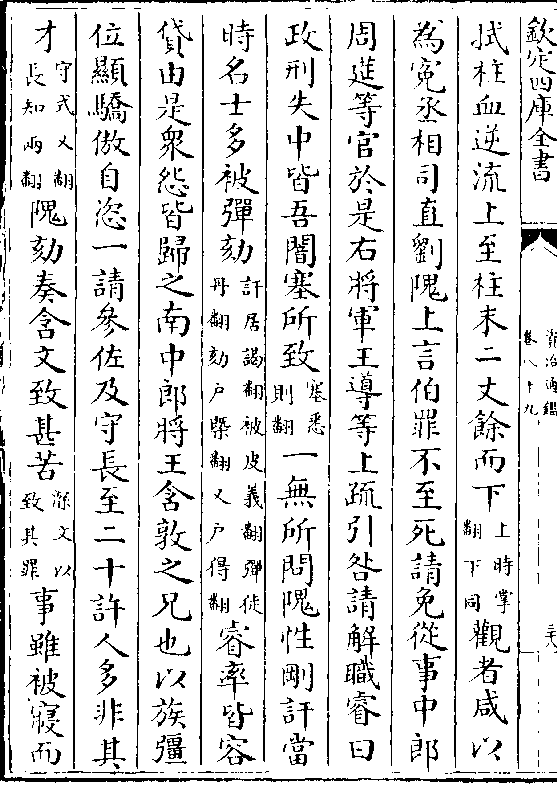 欽定四庫全書
資治通鑑
卷八十九
拭柱血逆流上至柱末二丈餘而下上時掌翻下同觀者咸以
為冤丞相司直劉隗上言伯罪不至死請免從事中郎
周莚等官於是右將軍王導等上疏引咎請解職睿曰
政刑失中皆吾闇塞所致塞悉則翻一無所問隗性剛訐當
時名士多被彈劾訐居謁翻被皮義翻彈徒丹翻劾戶槩翻又戶得翻睿率皆容
貸由是衆怨皆歸之南中郎將王含敦之兄也以族彊
位顯驕傲自恣一請參佐及守長至二十許人多非其
才守式又翻長知兩翻隗劾奏含文致甚苦深文以致其罪事雖被寢而